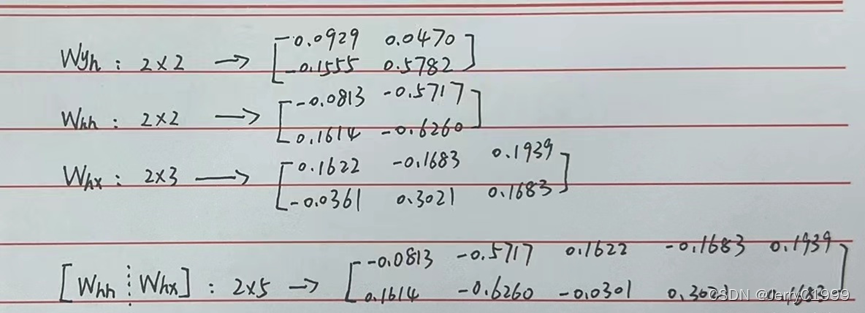 Wyh : 2×2 → [-0.0929 0.0470]
[-0.1555 0.5782]
Whh : 2×2 → [-0.0813 -0.5717]
[0.1614 -0.6260]
Whx : 2×3 → [0.1622 -0.1683 0.1939]
[-0.0361 0.3021 0.1683]
[-0.0813 -0.5717 0.1622 -0.1683 0.1939]
[Whh ⋮ Whx] : 2×5 → [0.1614 -0.6260 -0.0301 0.3021 0.1683]
CSDN @Jerry01999